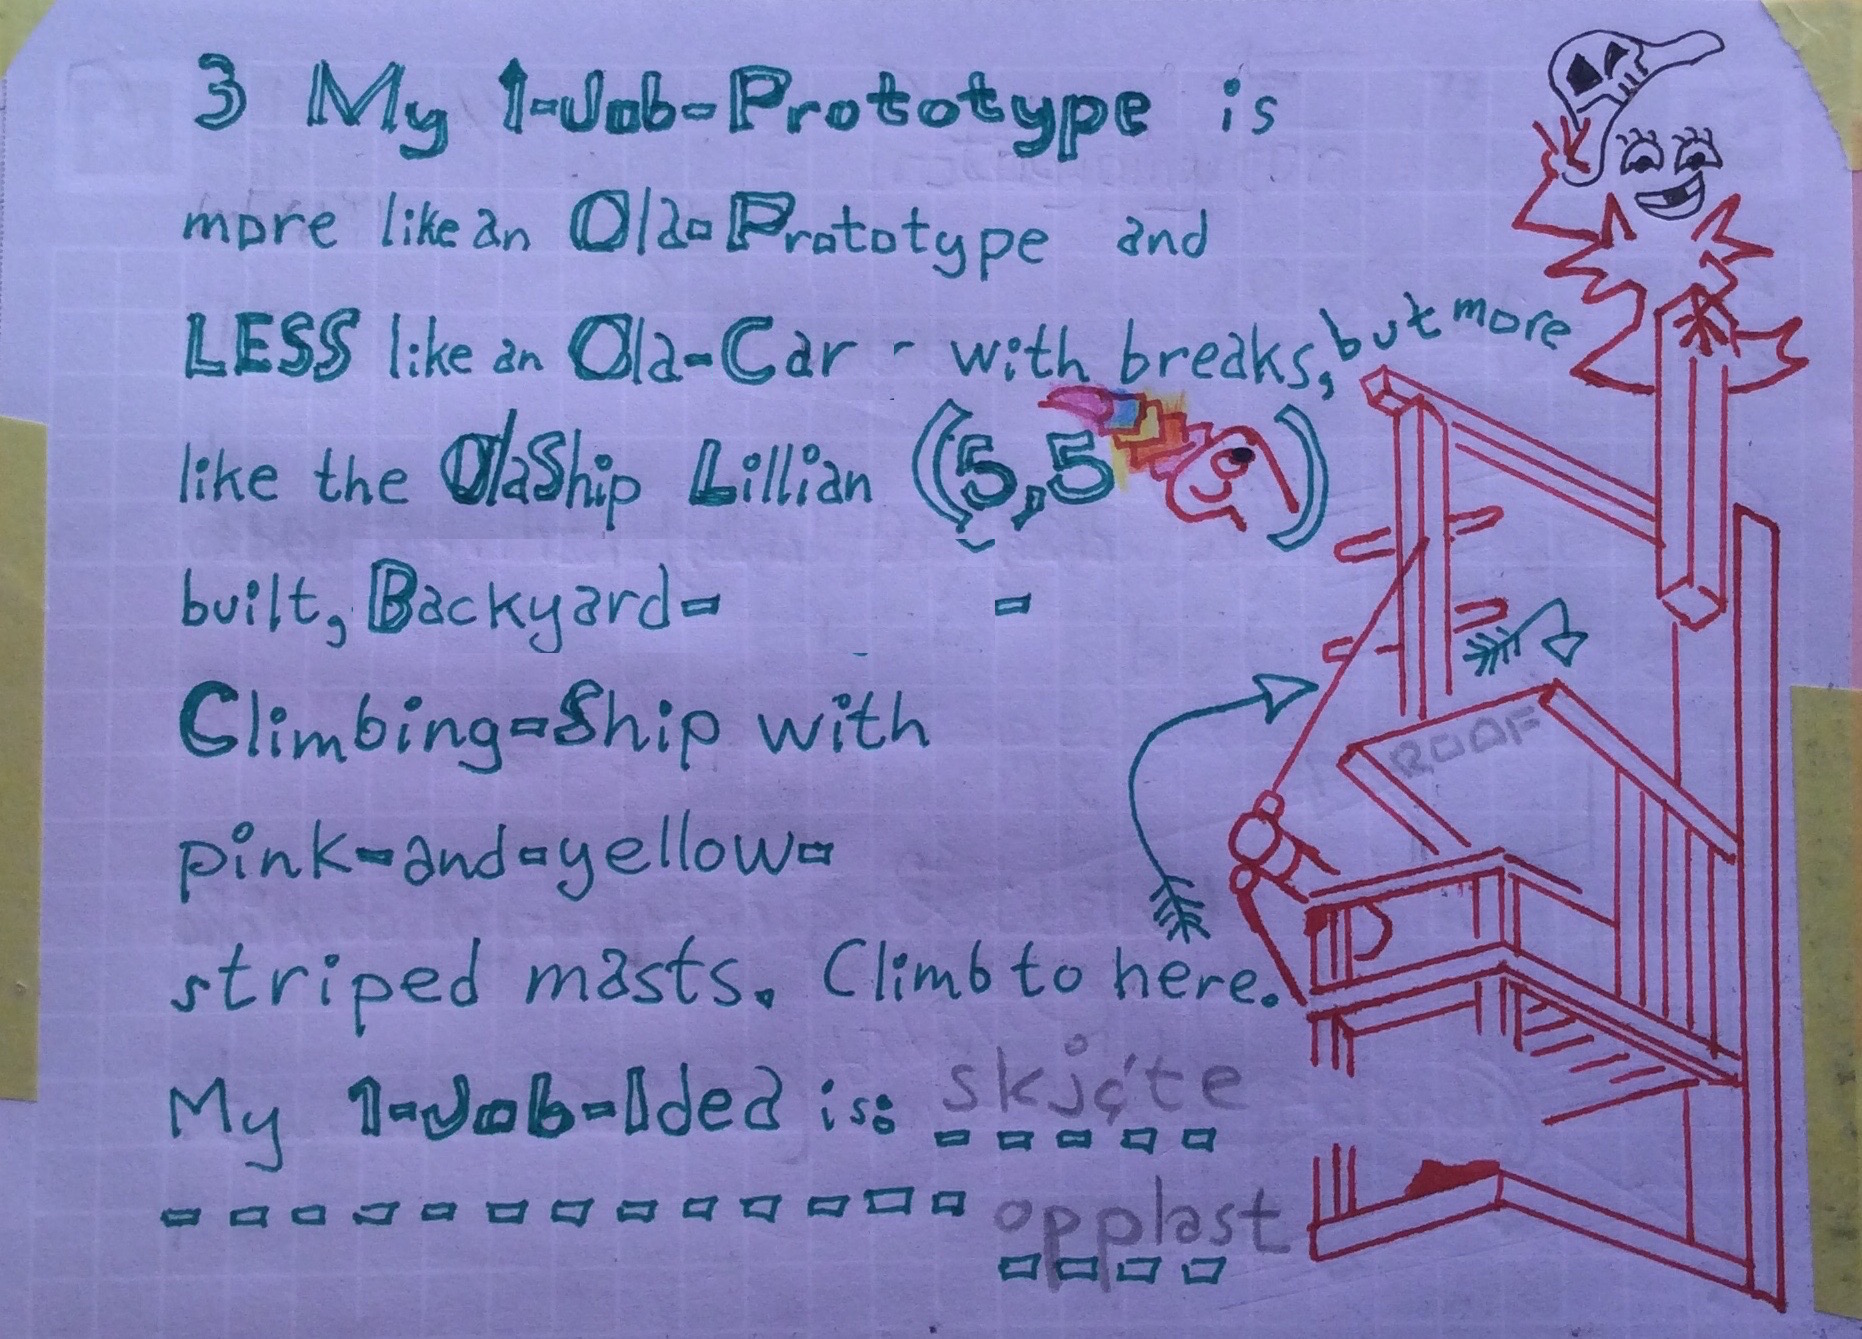 3 My 1-Job-Prototype is
more like an Ola-Prototype and
LESS like an Ola-Car - with breaks, but more
like the OlaShip Lillian (5,5)
built, Backyard- -
Climbing-Ship with
pink-and-yellow-
striped masts. Climb to here.
My 1-Job-Idea is:
opplast
ROOF